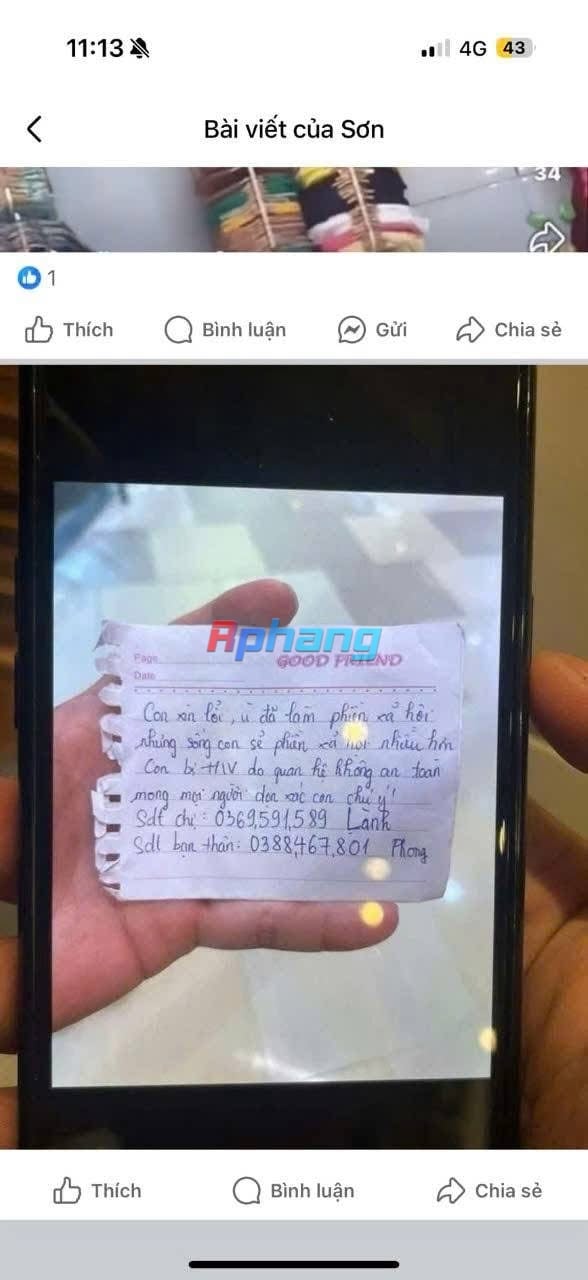 11:13
4G 43
Bài viết của Sơn
34
1
Thích Bình luận Gửi Chia sẻ
Rphang
Page
GOOD FRIEND
Date
Con xin lỗi, vì đã làm phiền xã hội
nhưng sống con sẽ phiền xã hội nhiều hơn
Con bị HIV do quan hệ không an toàn
mong mọi người dọn xác con chú ý!
Sdt chị: 0369,591,589 Lành
Sdt bạn thân: 0388,467,801 Phong
Thích Bình luận Chia sẻ